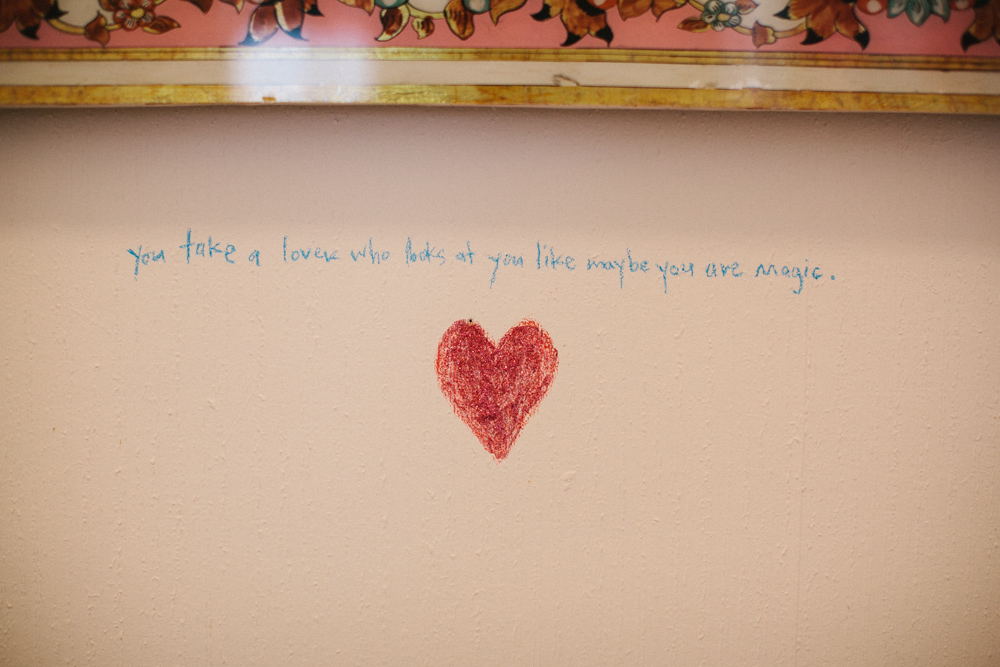 you take a lover who looks at you like maybe you are magic.